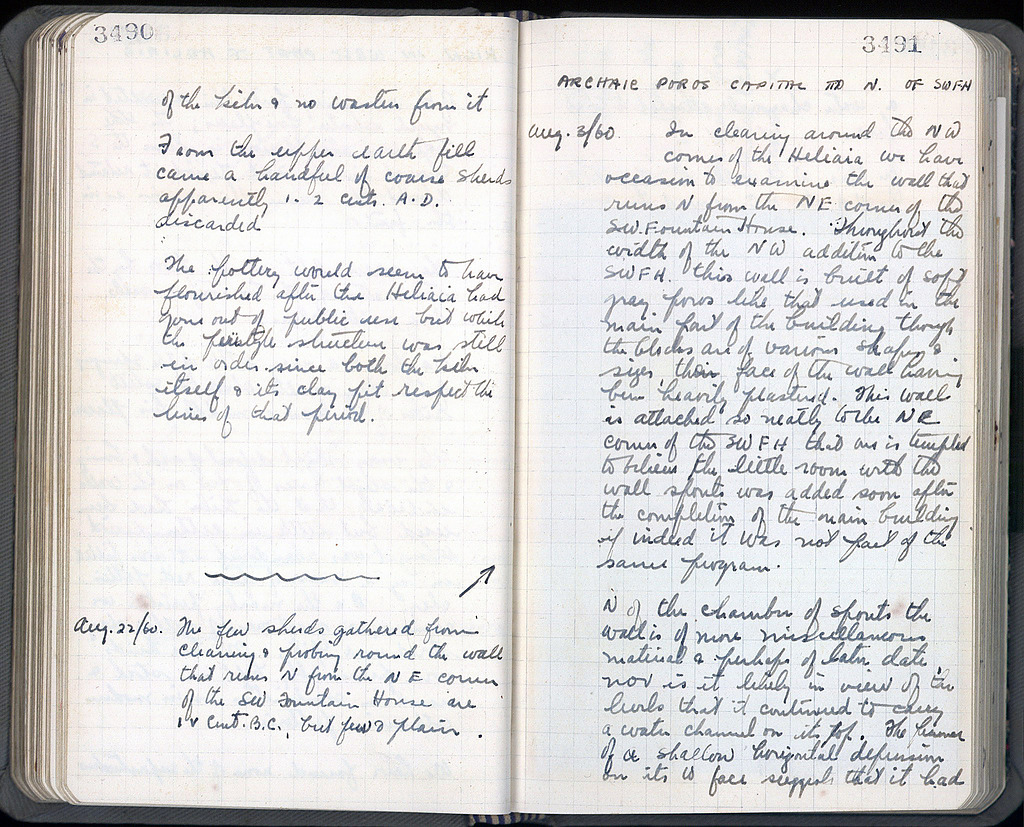 3490
of the kiln & no wasters from it
From the upper earth fill
came a handful of coarse sherds
apparently 1-2 cents. A.D.
discarded
The pottery would seem to have
flourished after the Heliaia had
gone out of public use but while
the peristyle structure was still
in order since both the kiln
itself & its clay pit respect the
lines of that period.
Aug. 22/60. The few sherds gathered from
cleaning & probing round the wall
that runs N from the NE corner
of the SW Fountain House are
IV Cent. B.C., but few & plain.
3491
ARCHAIC POROS CAPITAL TO N. OF SWFH
Aug. 3/60. In clearing around the NW
corner of the Heliaia we have
occasion to examine the wall that
runs N from the NE corner of the
SW. Fountain House. Throughout the
width of the NW addition to the
SWFH. this wall is built of soft
gray poros like that used in the
main part of the building though
the blocks are of various shapes &
sizes, face of the wall having
been heavily plastered. This wall
is attached so neatly to the NE
corner of the SWFH that one is tempted
to believe the little room with the
wall spouts was added soon after
the completion of the main building
if indeed it was not part of the
same program.
N of the chamber of spouts the
wall is of more miscellaneous
material & perhaps of later date,
nor is it likely in view of the
levels that it continued to carry
a water channel on its top. The
of a shallow horizontal depression
on its W face suggests that it had